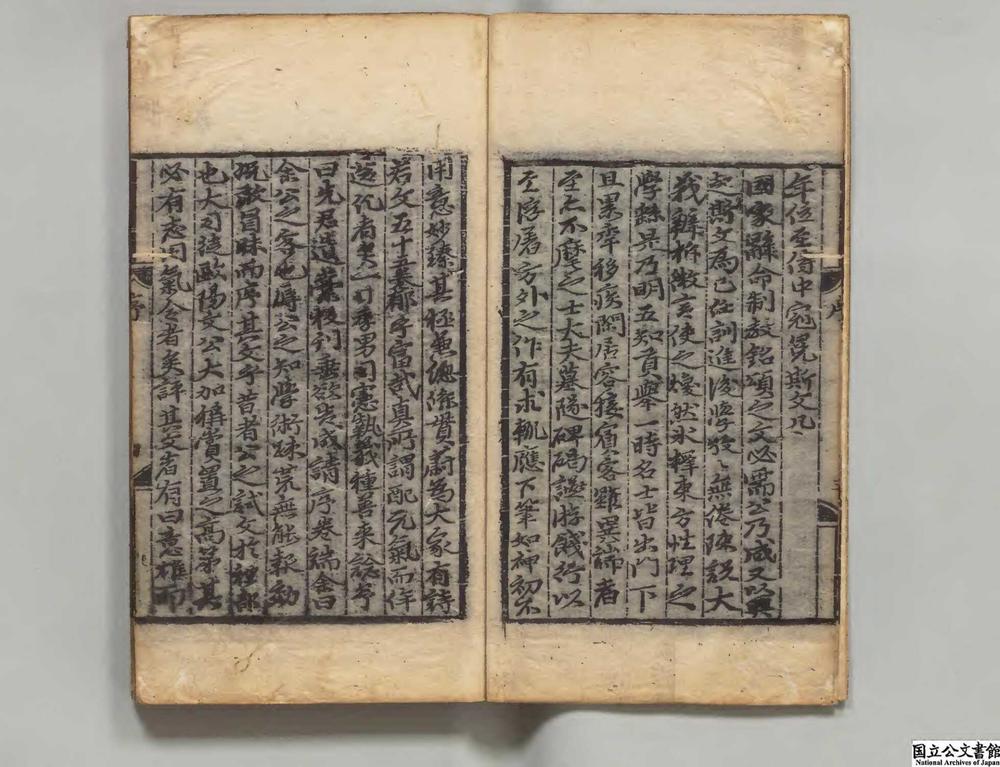 年位至侍中冠冕斯文凡
國家辭命制教銘頌之文必需公乃成又以興
起斯文為己任訓進後學孜〻無倦陳說大
義辨析微言使之煥然氷釋東方性理之
學繇是乃明五知貢舉一時名士皆出門下
且累年移疾閑居容接賓客雖異端者
至亦不麾之士大夫墓隧碑碣讌游餞行以
至浮屠方外之作有求輒應下筆如神初不
用意妙臻其極無總深贊蔚為大家有詩
若文五十五卷郁乎富哉真所謂配元氣而侔
造化者矣一日季男司憲執義種善來謂予
曰先君遺藁將刊垂欲先成請序卷端余曰
余公之客也辱公之知學術疎荒無能報効
既敢冒昧而序其文乎昔者公之試文於禮部
也大司徒歐陽文公大加稱賞置之高第其
必有志同氣合者矣評其文者有曰意雄而
序
序
国立公文書館
National Archives of Japan